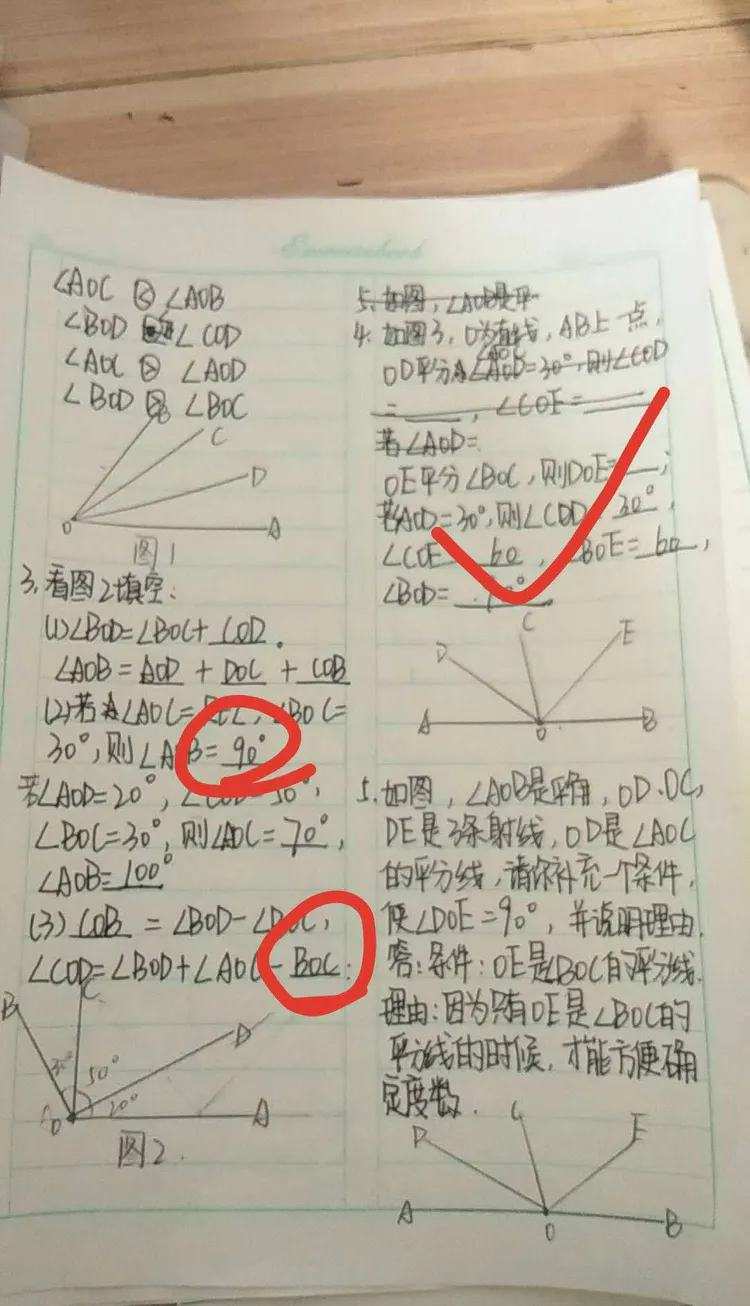 ∠AOC < ∠AOB
∠BOD ∠COD
∠AOC > ∠AOD
∠BOD ∠BOC
C
D
O
A
图1
3.看图2填空:
(1)∠BOD=∠BOC+ COD.
∠AOB=AOD + DOC + COB
(2)若∠AOC= ∠BOC=
30°,则∠AOB=90°
若∠AOD=20°,
∠BOC=30°,则∠AOC=70°,
∠AOB=100°
(3) COB =∠BOD-∠DOC,
∠COD=∠BOD+∠AOC-BOC;
C
B
D
30°
50°
20°
O
A
图2.
5.如图,∠AOB是平
4.如图3,O为直线,AB上一点,
OD平分∠AOC=30°,则∠COD
=___,∠COE=___
若∠AOD=
OE平分∠BOC,则DOE=__;
若AOD=30°,则∠COD 30°,
∠COE 60,∠BOE=60,
∠BOD=
C
E
D
A
O
B
5.如图,∠AOB是平角,OD.OC,
DE是3条射线,OD是∠AOC
的平分线,请你补充一个条件,
使∠DOE=90°,并说明理由.
答:条件:OE是∠BOC的平分线.
理由:因为只有OE是∠BOC的
平分线的时候,才能方便确
定度数.
C
D
E
A
O
B